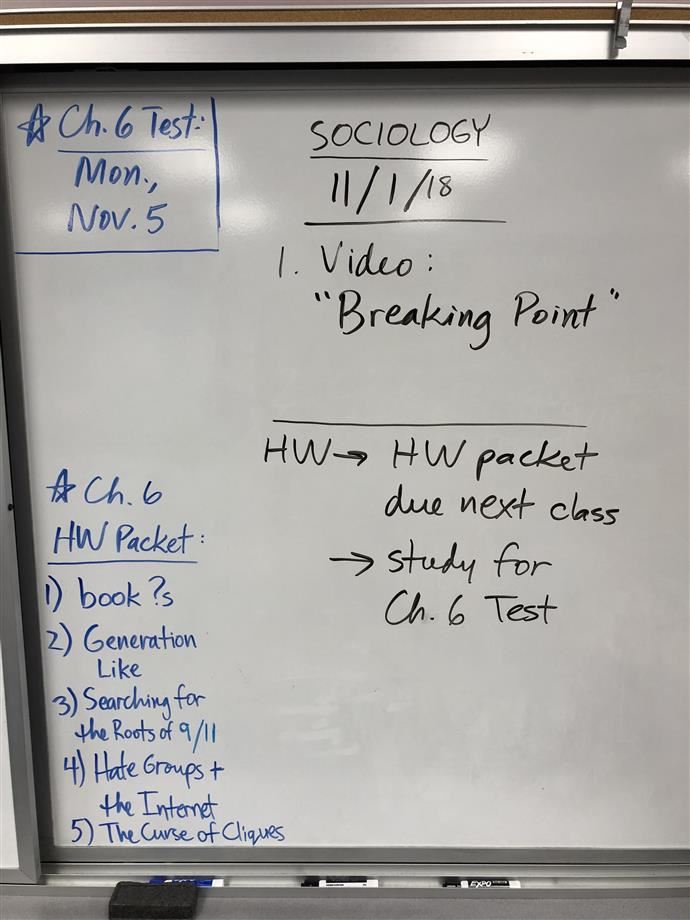 ☆ Ch. 6 Test:
Mon.,
Nov. 5
SOCIOLOGY
11/1/18
1. Video:
"Breaking Point"
HW → HW packet
due next class
→ study for
Ch. 6 Test
☆ Ch. 6
HW Packet:
1) book ?s
2) Generation
Like
3) Searching for
the Roots of 9/11
4) Hate Groups +
the Internet
5) The Curse of Cliques
EXPO